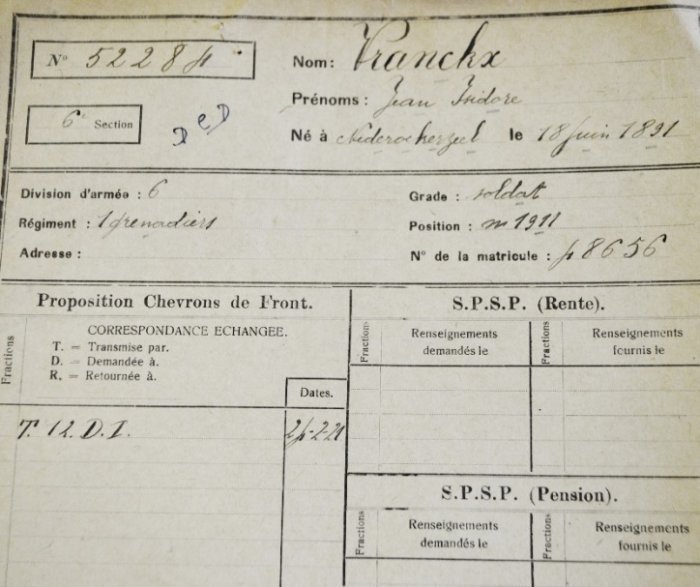 N° 5228
Nom: Vranckx
6e Section
D e D
Prénoms: Jean Isidore
Né à Nederockerzeel le 18 juin 1891
Division d'armée : 6
Régiment : 1 grenadiers
Adresse :
Grade : soldat
Position : m 1911
N° de la matricule : 8656
Proposition Chevrons de Front.
Fractions
CORRESPONDANCE ECHANGEE.
T. = Transmise par.
D. = Demandée à.
R. = Retournée à.
Dates.
T. 12. D.I.
S.P.S.P. (Rente).
Fractions
Renseignements
demandés le
Fractions
Renseignements
fournis le
S.P.S.P. (Pension).
Fractions
Renseignements
demandés le
Fractions
Renseignements
fournis le